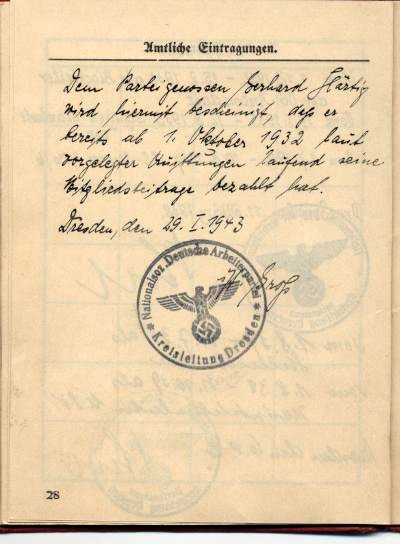 Amtliche Eintragungen.
Dem Parteigenossen Gerhard Härtig
wird hiermit bescheinigt, daß er
bereits ab 1. Oktober 1932 laut
vorgelegter Quittungen laufend seine
Mitgliedsbeiträge bezahlt hat.
Dresden, den 29. I. 1943
Nationalsoz. Deutsche Arbeiterpartei
* Kreisleitung Dresden *
28